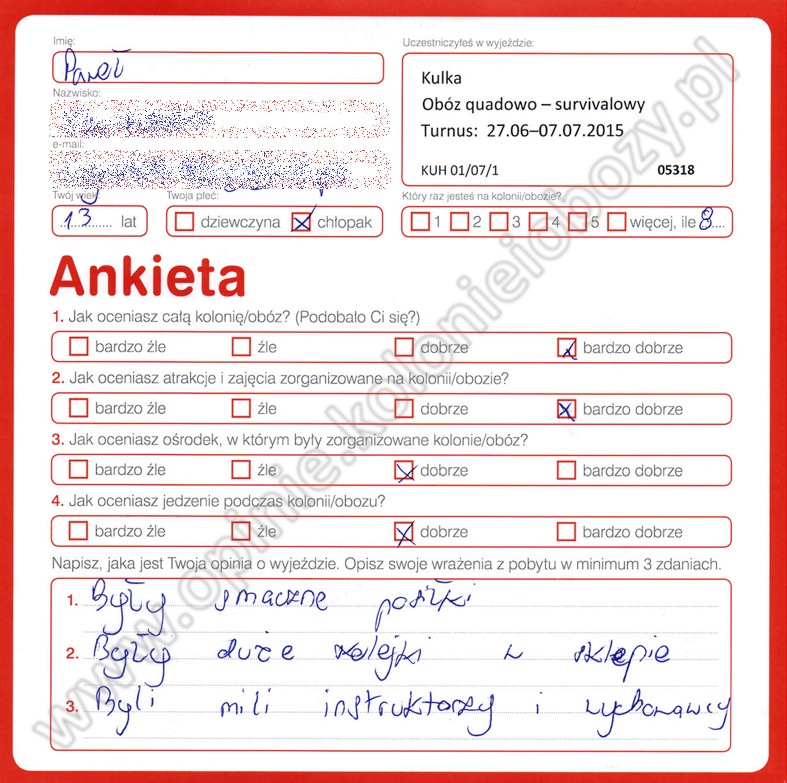 Imię:
Paweł
Uczestniczyłeś w wyjeździe:
Kulka
Obóz quadowo – survivalowy
Turnus: 27.06–07.07.2015
KUH 01/07/1 05318
Nazwisko:
e-mail:
Twój wiek
13 lat
Twoja płeć:
dziewczyna chłopak
Który raz jesteś na kolonii/obozie?
1 2 3 4 5 więcej, ile 8
Ankieta
1. Jak oceniasz całą kolonię/obóz? (Podobało Ci się?)
bardzo źle źle dobrze bardzo dobrze
2. Jak oceniasz atrakcje i zajęcia zorganizowane na kolonii/obozie?
bardzo źle źle dobrze bardzo dobrze
3. Jak oceniasz ośrodek, w którym były zorganizowane kolonie/obóz?
bardzo źle źle dobrze bardzo dobrze
4. Jak oceniasz jedzenie podczas kolonii/obozu?
bardzo źle źle dobrze bardzo dobrze
Napisz, jaka jest Twoja opinia o wyjeździe. Opisz swoje wrażenia z pobytu w minimum 3 zdaniach.
1. Były smaczne posiłki
2. Były duże kolejki w sklepie
3. Byli mili instruktorzy i wychowawcy
www.opinie.kolonieiobozy.pl